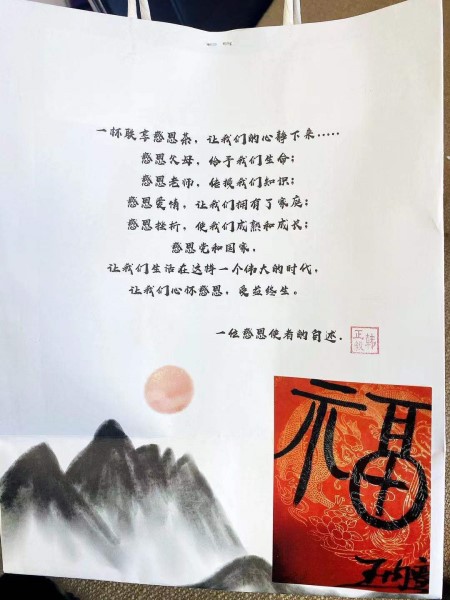 一杯联享感恩茶，让我们的心静下来·····
感恩父母，给于我们生命；
感恩老师，传授我们知识；
感恩爱情，让我们拥有了家庭；
感恩挫折，使我们成熟和成长；
感恩党和国家，
让我们生活在这样一个伟大的时代，
让我们心怀感恩，受益终生。
一位感恩使者的自述.
福